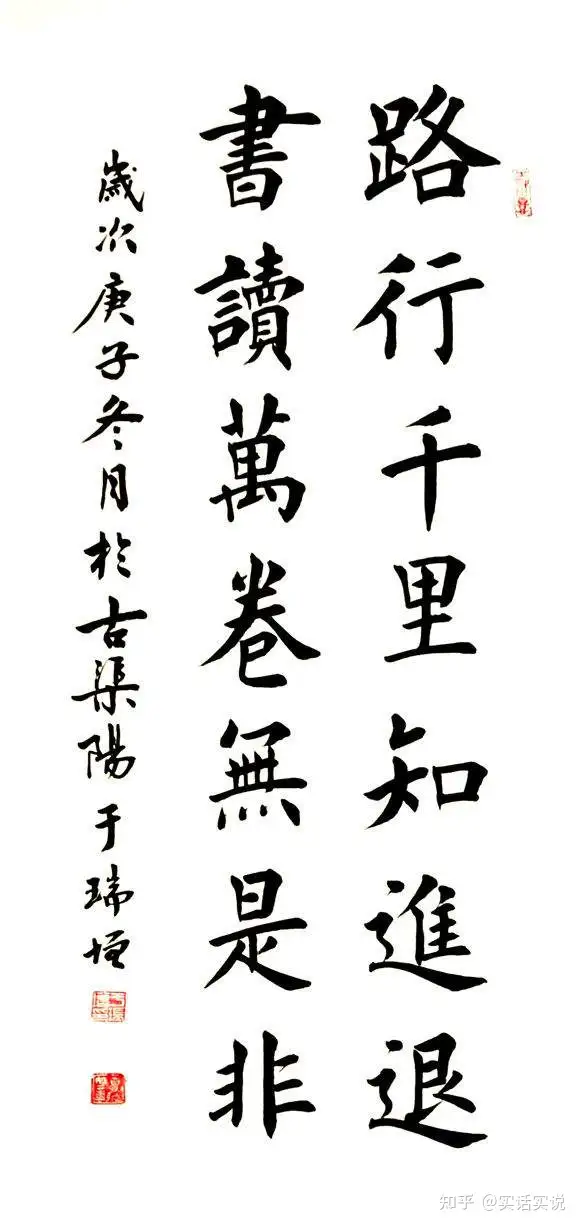 路行千里知進退
書讀萬卷無是非
歲次庚子冬月於古渠陽于瑞垣
知乎 @实话实说